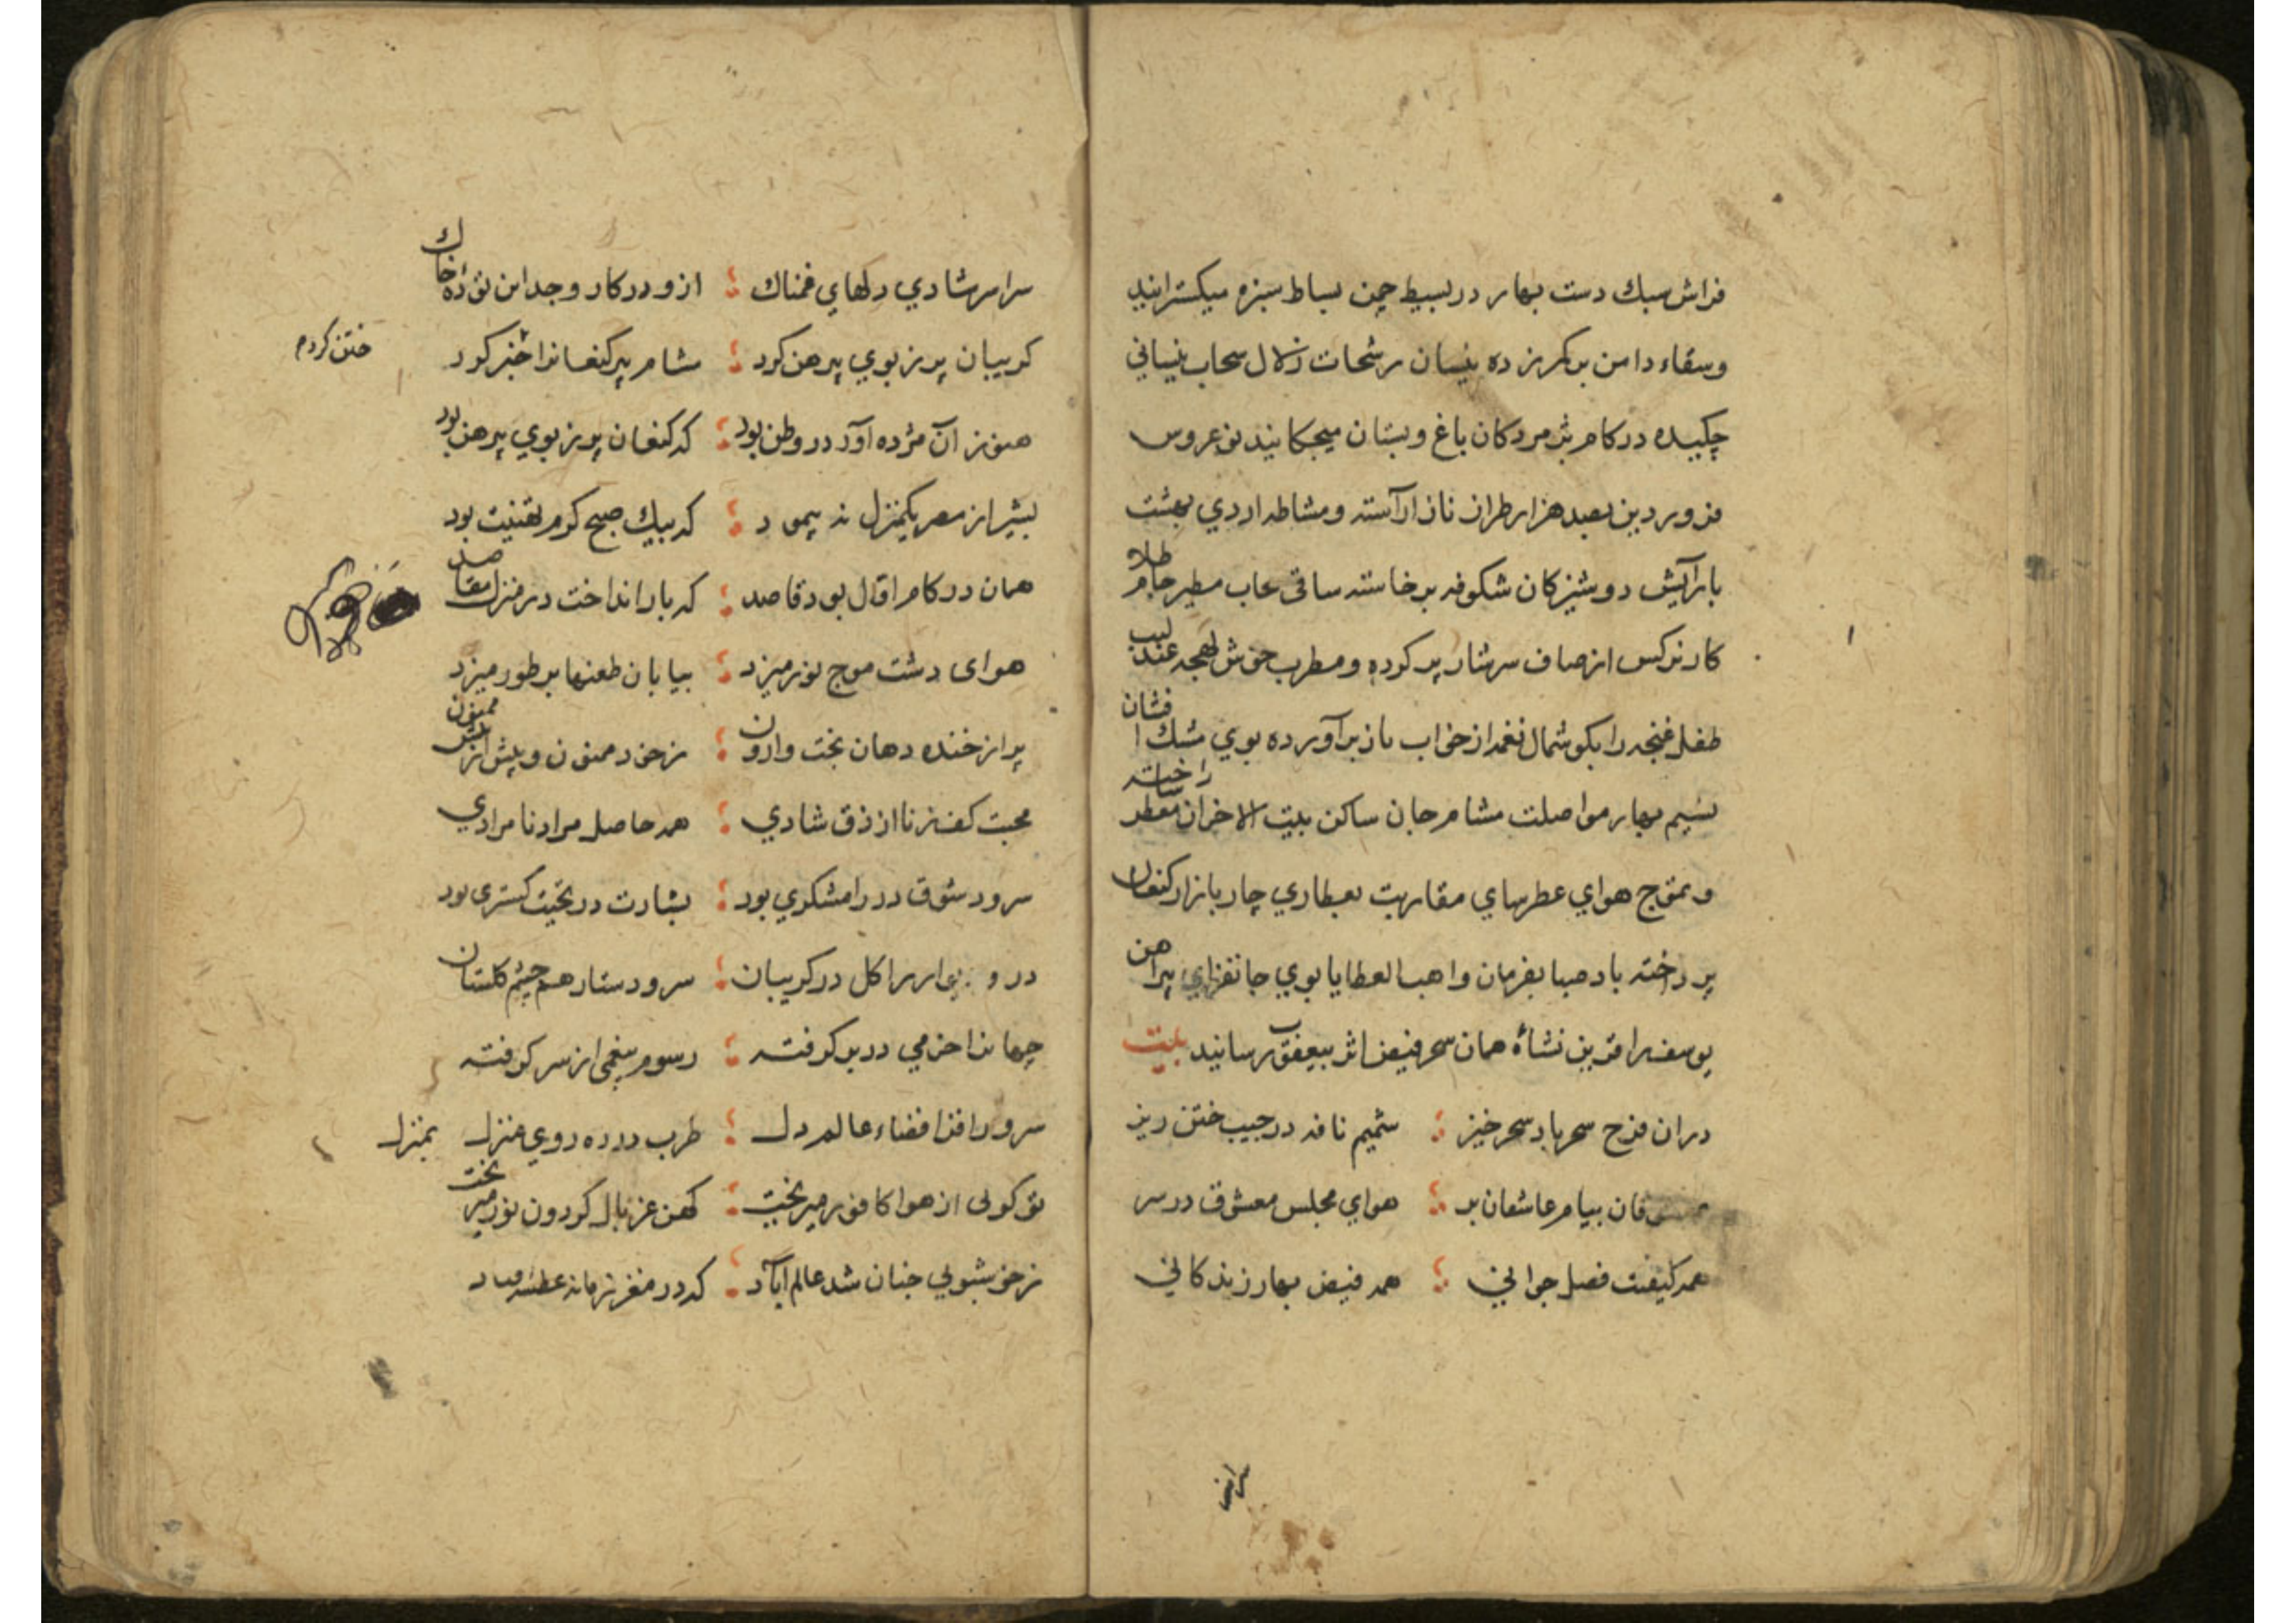 فراش سبك دست بهار در بسيط چمن بساط سبزه ميكسترانيد
و سقاء دامن بر كمر زده نيسان رشحات زلال سحاب نيساني
چكيده در كام پژمردكان باغ و بستان ميچكانيد نو عروس
فروردين بصد هزار طراز ناز آراسته و مشاطه اردي بهشت
بارآيش دوشيزكان شكوفه برخاسته ساقي سحاب مطير جام طلا
كار نركس از صاف سرشار پر كرده و مطرب خوش لهجه عندليب
طفل غنچه را بكوشمال نغمه از خواب ناز برآورده بوي مشك افشان
نسيم بهار مواصلت مشام جان ساكن بيت الاحزان را معطر ساخته
و تموج هواي عطرساي مقاربت بعطاري چار بازار كنعان
پرداخته باد صبا بفرمان واهب العطايا بوي جانفزاي پيراهن
يوسف را قرين نشاۀ همان سحر فيض اثر بيعقوب رسانيد بيت
دران فرح سحر باد سحرخيز ؛ شميم نافه در جيب ختن ريز
پيام عاشقان بر ؛ هواي مجلس معشوق در سر
همه كيفيت فصل جواني ؛ همه فيض بهار زندكاني
سراسر
سراسر شادي دلهاي غمناك ؛ ازو در كار وجد اين توده خاك
كريبان پر ز بوي پيرهن كرد ؛ مشام پير كنعانرا ختن كرد
ختن كردم
هنوز آن مژده آور در وطن بود ؛ كه كنعان پر ز بوي پيرهن بود
بشير از مصر يكمنزل نه پيمود ؛ كه پيك صبح كرم تهنيت بود
همان در كام اول بود قاصد ؛ كه بار انداخت در منزل مقاصد
هواى دشت موج نور ميزد ؛ بيابان طعنها بر طور ميزد
پر از خنده دهان بخت وارون ؛ ز خود ممنون و بيش از بيش ممنون
محبت كف زنان از ذوق شادي ؛ همه حاصل مراد نامرادي
سرود شوق در رامشكري بود ؛ بشارت در تحيت كستري بود
در و ديوار را كل در كريبان ؛ سر و دستار هم چشم كلستان
جهانرا خرمي در بر كرفته ؛ رسوم بيغمى از سر كرفته
سرور افزا فضاء عالم دل ؛ طرب در ره روي منزل بمنزل
تو كوئى از هوا كافور ميريخت ؛ كهن غربال كردون نور ميريخت
ز خوشبوئي جنان شد عالم آباد ؛ كه در مغز زمانه عطسه